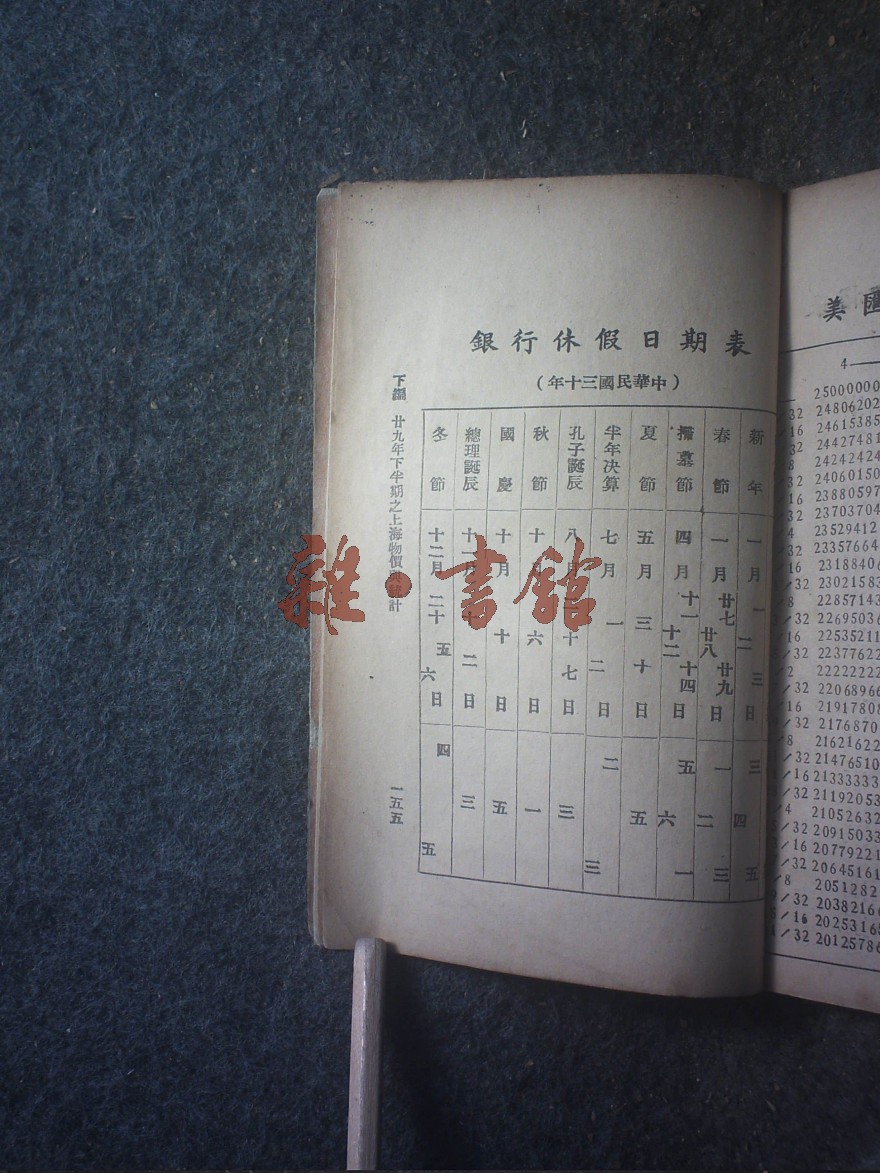 銀行休假日期表
(中華民國三十年)
新年 一月一二三日 三四五
春節 一月廿七廿八廿九日 一二三
掃墓節 四月十一十二十四日 五六一
夏節 五月三十日 五
半年決算 七月一二日 二三
孔子誕辰 八月二十七日 三
秋節 十月六日 一
國慶 十月十日 五
總理誕辰 十一月十二日 三
冬節 十二月二十五六日 四五
下編 廿九年下半期之上海物價 計
一五五
雜·書館
美國
4
25000000
/32 24806202
/16 24615385
/32 24427481
/8 24242424
/32 24060150
/16 23880597
/32 23703704
/4 23529412
/32 23357664
/16 23188406
/32 23021583
/8 22857143
/32 22695036
/16 22535211
/32 22377622
/2 22222222
/32 22068966
/16 21917808
/32 21768707
/8 21621622
/32 21476510
/16 21333333
/32 21192053
/4 21052632
/32 20915033
/16 20779221
/32 20645161
/8 2051282
/32 2038216
/16 2025316
/32 20125786